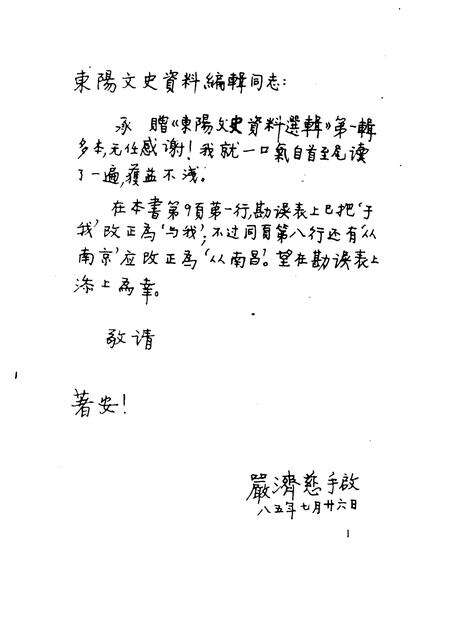 東陽文史資料編輯同志：
承 贈《東陽文史資料選輯》第一輯
多本，无任感谢！我就一口氣自首至尾读
了一遍，獲益不浅。
在本書第9頁第一行，勘误表上已把‘于
我’改正為‘与我’；不过同頁第八行还有‘从
南京’应改正為‘从南昌’。望在勘误表上
添上為幸。
敬请
著安！
嚴濟慈手啟
八五年七月廿六日